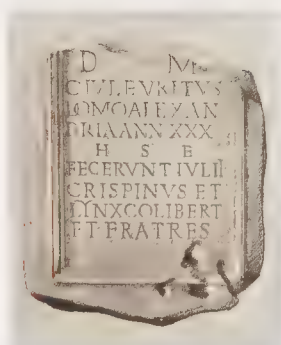 D M
C IVL EVRITVS
DOMO ALEXAN
DRIA ANN XXX
H S E
FECERVNT IVLII
CRISPINVS ET
LYNX COLIBERT
ET FRATRES